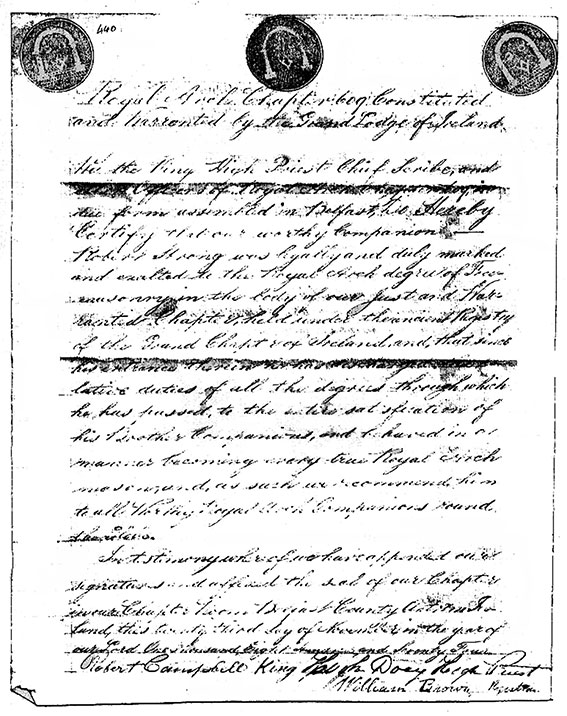 440
Royal Arch Chapter 609 Constituted
and warranted by the Grand Lodge of Ireland.
We the King High Priest Chief Scribe, and
Officers of Royal
from assembled in Belfast, do Hereby
Certify that our worthy Companion
Robert Strong was legally and duly marked
and exalted to the Royal Arch degree of Free-
masonry in the body of our Just and War-
ranted Chapter, held under the ancient Registry
of the Grand Chapter of Ireland and, that since
his entrance therein he has discharged the re-
lative duties of all the degrees through which
he has passed, to the entire satisfication of
his Brother Companions, and behaved in a
manner becoming every true Royal Arch
mason, and, as such we recommend him
to all Royal Arch Companions round
the Globe.
In testimony whereof we have appended our
signatures and affixed the seal of our Chapter
in our Chapter Room Belfast County Antrim Ire-
land, this twenty third day of November in the year of
our Lord One thousand eight and Seventy Four
Robert Campbell King Hugh Doey High Priest
William Brown